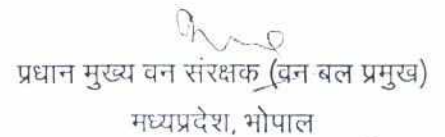 प्रधान मुख्य वन संरक्षक (वन बल प्रमुख)
मध्यप्रदेश, भोपाल